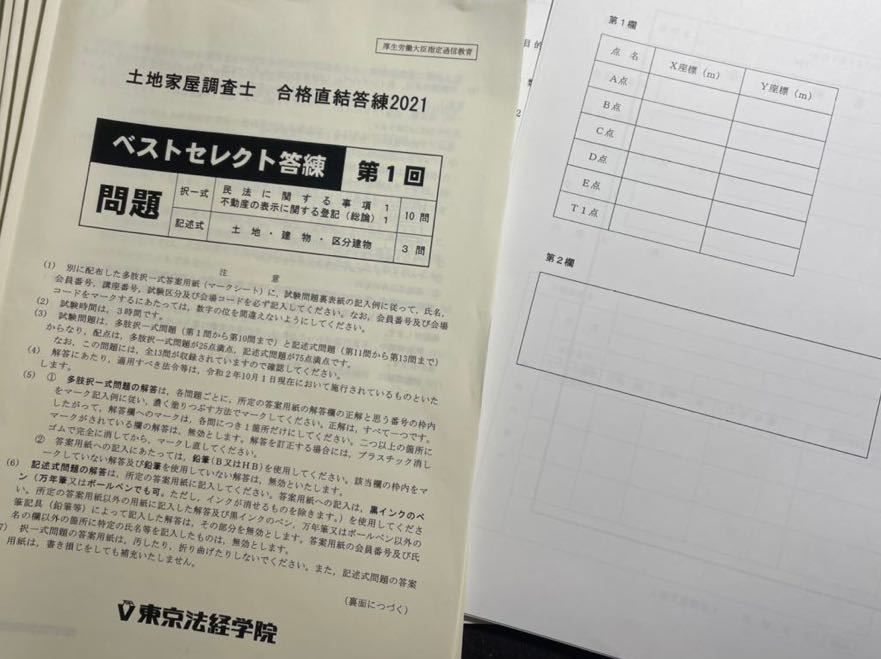 厚生労働大臣指定通信教育
土地家屋調査士　合格直結答練2021
ベストセレクト答練　第1回
問題
択一式
民法に関する事項 1
不動産の表示に関する登記（総論）1
10問
記述式
土地・建物・区分建物
3問
注　意
(1)　別に配布した多肢択一式答案用紙（マークシート）に，試験問題裏表紙の記入例に従って，氏名，
会員番号，講座番号，試験区分及び会場コードを必ず記入してください。なお，会員番号及び会場
コードをマークするにあたっては，数字の位を間違えないようにしてください。
(2)　試験時間は，3時間です。
(3)　試験問題は，多肢択一式問題（第1問から第10問まで）と記述式問題（第11問から第13問まで）
からなり，配点は，多肢択一式問題が25点満点，記述式問題が75点満点です。
なお，この問題には，全13問が収録されていますので確認してください。
(4)　解答にあたり，適用すべき法令等は，令和2年10月1日現在において施行されているものといた
します。
(5)　①　多肢択一式問題の解答は，各問題ごとに，所定の答案用紙の解答欄の正解と思う番号の枠内
をマーク記入例に従い，濃く塗りつぶす方法でマークしてください。正解は，すべて一つです。
したがって，解答欄へのマークは，各問につき1箇所だけにしてください。二つ以上の箇所に
マークがされている欄の解答は，無効とします。解答を訂正する場合には，プラスチック消し
ゴムで完全に消してから，マークし直してください。
②　答案用紙への記入にあたっては，鉛筆（B又はHB）を使用してください。該当欄の枠内をマ
ークしていない解答及び鉛筆を使用していない解答は，無効といたします。
(6)　記述式問題の解答は，所定の答案用紙に記入してください。答案用紙への記入は，黒インクのペ
ン（万年筆又はボールペンでも可。ただし，インクが消せるものを除きます。）を使用してくださ
い。所定の答案用紙以外の用紙に記入した解答及び黒インクのペン，万年筆又はボールペン以外の
筆記具（鉛筆等）によって記入した解答は，その部分を無効とします。答案用紙の会員番号及び氏
名の欄以外の箇所に特定の氏名等を記入したものは，無効とします。
7)　択一式問題の答案用紙は，汚したり，折り曲げたりしないでください。また，記述式問題の答案
用紙は，書き損じをしても補充いたしません。
（裏面につづく）
東京法経学院
目的
数
第1欄
点名　X座標（m）　Y座標（m）
A点
B点
C点
D点
E点
T1点
第2欄